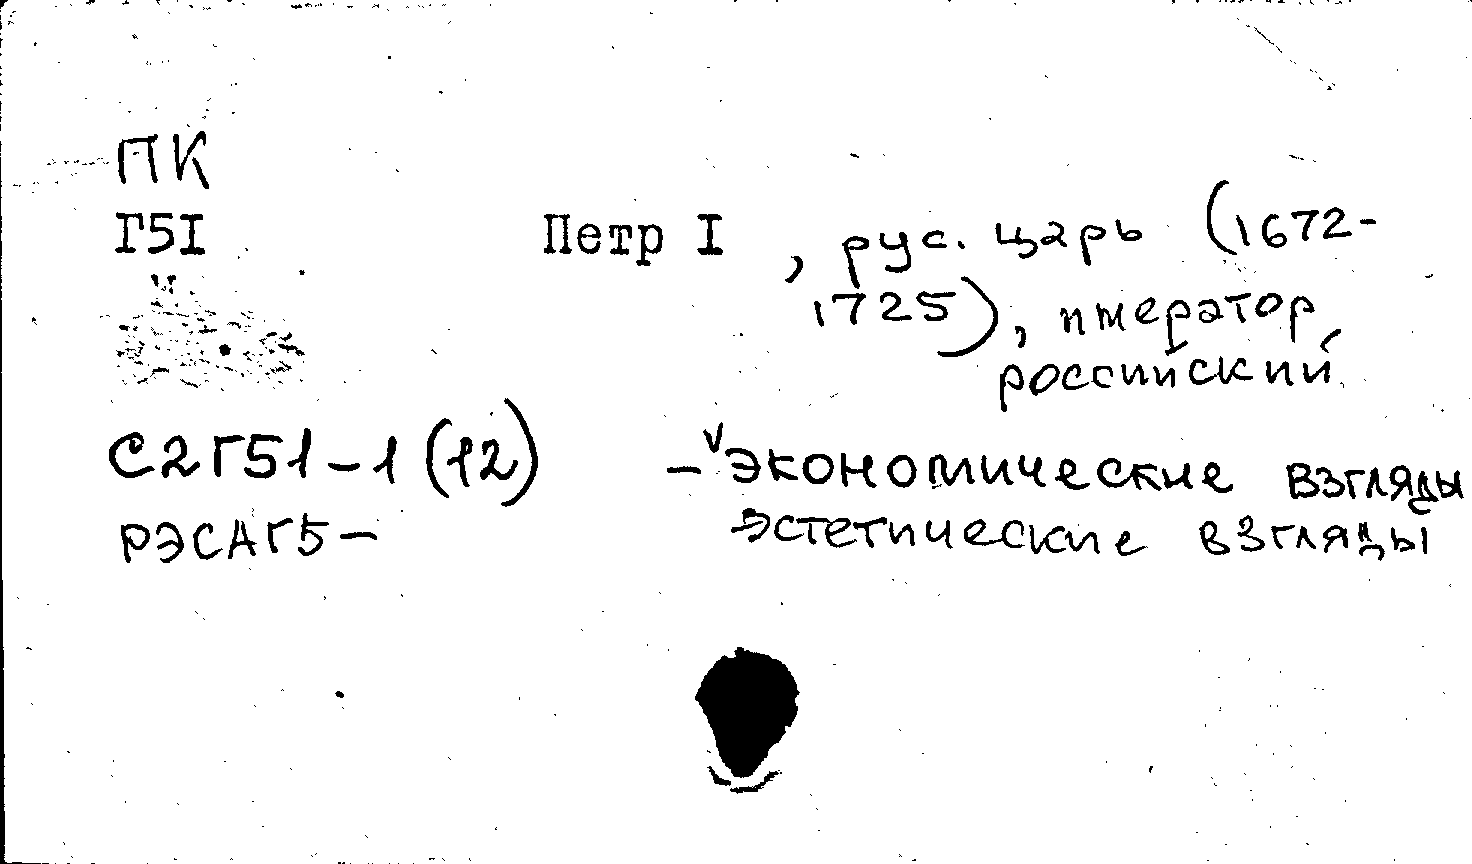 ПК
Г51 Петр I, рус. царь (1672-
1725), император
российский
С2Г51-1 (12) - ᵛэкономические взгляды
РЭСАГ5- эстетические взгляды